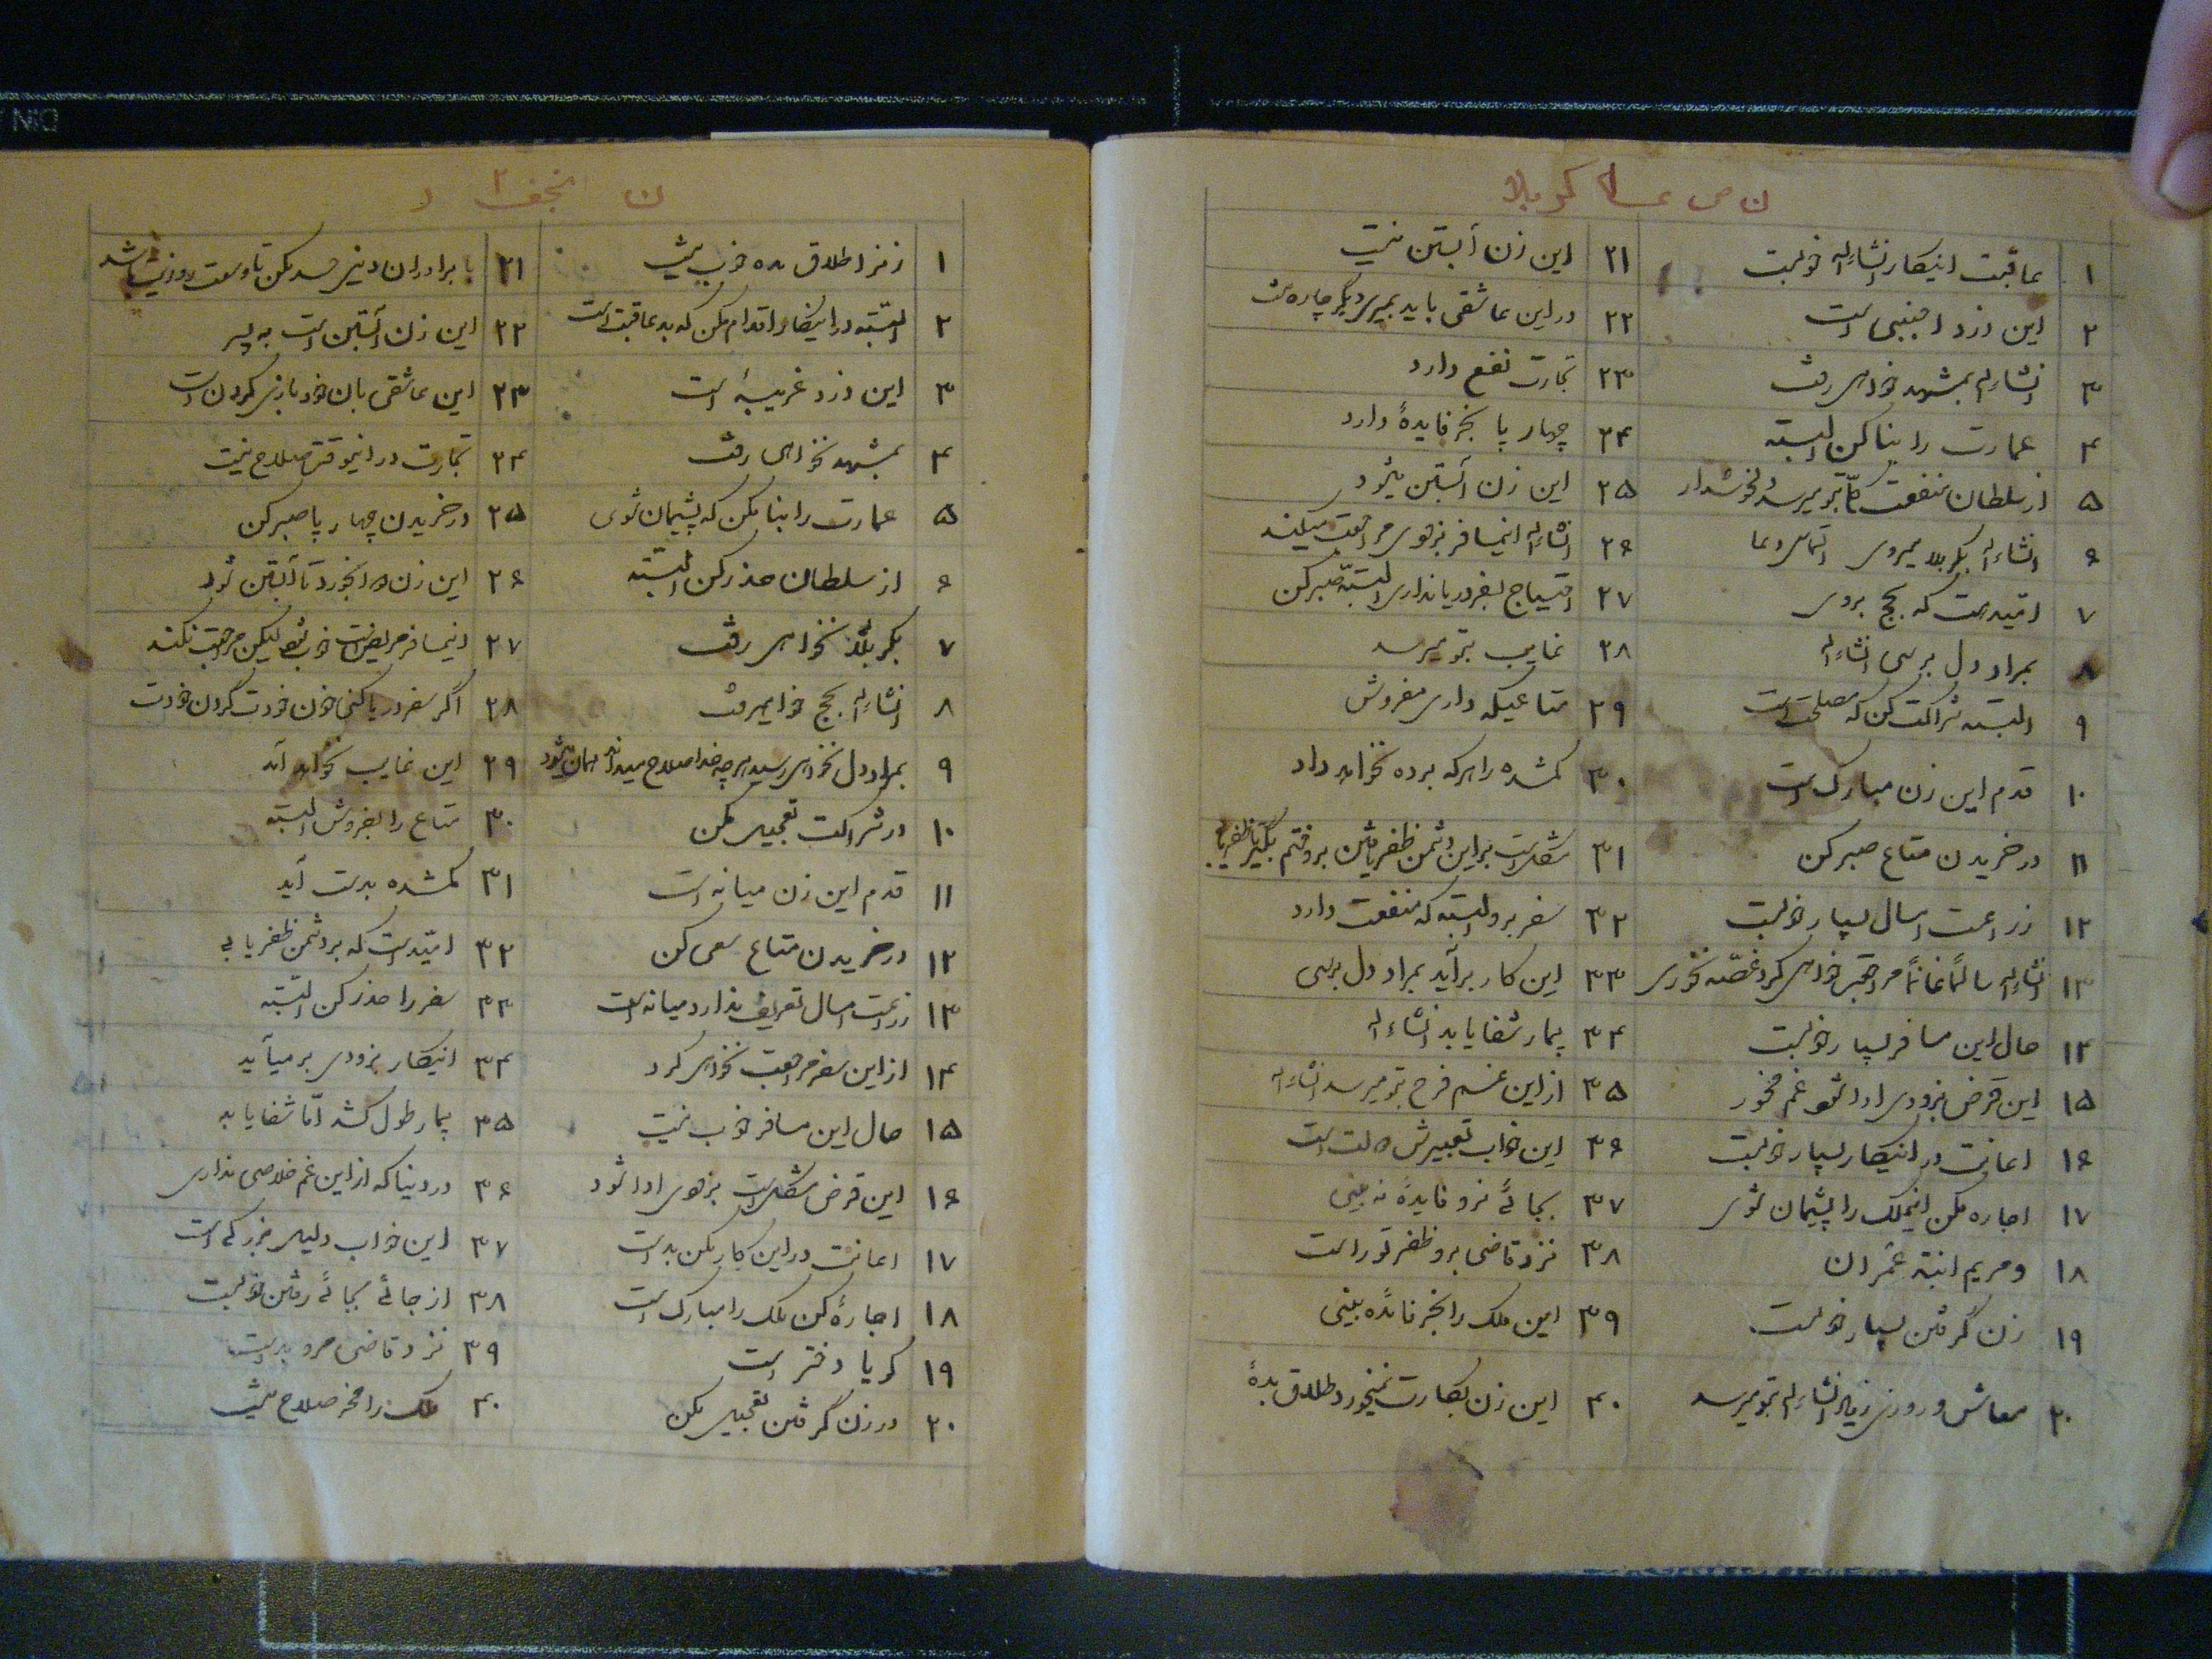 کربلا
۱ عاقبت اینکار انشاءاله خوبست
۲ این دزد اجنبی است
۳ انشاءاله بمشهد خواهی رفت
۴ عمارت را بنا کن البته
۵ از سلطان منفعت بتو میرسد
۶ انشاءاله بکربلا میروی التماس دعا
۷ امید هست که بحج بروی
۸ بمراد دل برسی انشاءاله
۹ البته شراکت کن که مصلحت است
۱۰ قدم این زن مبارک است
۱۱ در خریدن متاع صبر کن
۱۲ زراعت امسال بسیار خوبست
۱۳ انشاءاله سالماً غانماً مراجعت خواهی کرد غصّه نخوری
۱۴ حال این مسافر بسیار خوبست
۱۵ این قرض بزودی ادا شود غم مخور
۱۶ اعانت در اینکار بسیار خوبست
۱۷ اجاره مکن اینملک را پشیمان شوی
۱۸ و مریم ابنة عمران
۱۹ زن گرفتن بسیار خوبست
۲۰ معاش و روزی زیاد انشاءاله بتو میرسد
۲۱ این زن آبستن نیست
۲۲ در این عاشقی باید بمیری دیگر چاره
۲۳ تجارت نفع دارد
۲۴ چهار پا بخر فایدهٔ دارد
۲۵ این زن آبستن میشود
۲۶ انشاءاله اینمسافر بزودی مراجعت میکند
۲۷ احتیاج بسفر دریا نداری البتّه صبر کن
۲۸ غایب بتو میرسد
۲۹ متاعیکه داری مفروش
۳۰ گمشده را هر که برده نخواهد داد
۳۱ مشکل است بر این دشمن ظفر یافتن
۳۲ سفر برو البته که منفعت دارد
۳۳ این کار برآید بمراد دل برسی
۳۴ بیمار شفا یابد انشاءاله
۳۵ از این غم فرح بتو میرسد انشاءاله
۳۶ این خواب تعبیرش دولت است
۳۷ بجائے نرو فایدهٔ نه بینی
۳۸ نزد قاضی برو ظفر تو راست
۳۹ این ملک را بخر فائده بینی
۴۰ این زن بکارت نمیخورد طلاق بدهٔ
نجف
۱ زنرا طلاق مده خوب نیست
۲ البتّه در اینکار اقدام مکن که بد عاقبت است
۳ این دزد غریبهٔ است
۴ بمشهد نخواهی رفت
۵ عمارت را بنا مکن که پشیمان شوی
۶ از سلطان حذر کن البتّه
۷ بکربلا نخواهی رفت
۸ انشاءاله بحج خواهی رفت
۹ بمراد دل نخواهی رسید هر چه خدا صلاح میداند همان میشود
۱۰ در شراکت تعجیل مکن
۱۱ قدم این زن میانه است
۱۲ در خریدن متاع سعی کن
۱۳ زراعت امسال تعریف ندارد میانه است
۱۴ از این سفر مراجعت نخواهی کرد
۱۵ حال این مسافر خوب نیست
۱۶ این قرض مشکل است بزودی ادا شود
۱۷ اعانت در این کار مکن بد است
۱۸ اجارهٔ کن ملک را مبارک است
۱۹ گویا دختر است
۲۰ در زن گرفتن تعجیل مکن
۲۱ با برادران دینی حسد مکن تا وسعت روزیت باشد
۲۲ این زن آبستن است به پسر
۲۳ این عاشقی بجان خود بازی کردن است
۲۴ تجارت در اینوقت صلاح نیست
۲۵ در خریدن چهار پا صبر کن
۲۶ این زن دوا بخورد تا آبستن شود
۲۷ اینمسافر مریض است خوب شود لیکن مراجعت نکند
۲۸ اگر سفر دریا کنی خون خودت گردن خودت
۲۹ این غایب نخواهد آمد
۳۰ متاع را بفروش البته
۳۱ گمشده بدست آید
۳۲ امّید است که بر دشمن ظفر یابی
۳۳ سفر را حذر کن البتّه
۳۴ اینکار بزودی بر میآید
۳۵ بیمار طول کشد امّا شفا یابد
۳۶ دردیناکه از این غم خلاصی نداری
۳۷ این خواب دلیل بزرگی است
۳۸ از جائے بجائے رفتن خوبست
۳۹ نزد قاضی مرو بد است
۴۰ ملک را مخر صلاح نیست